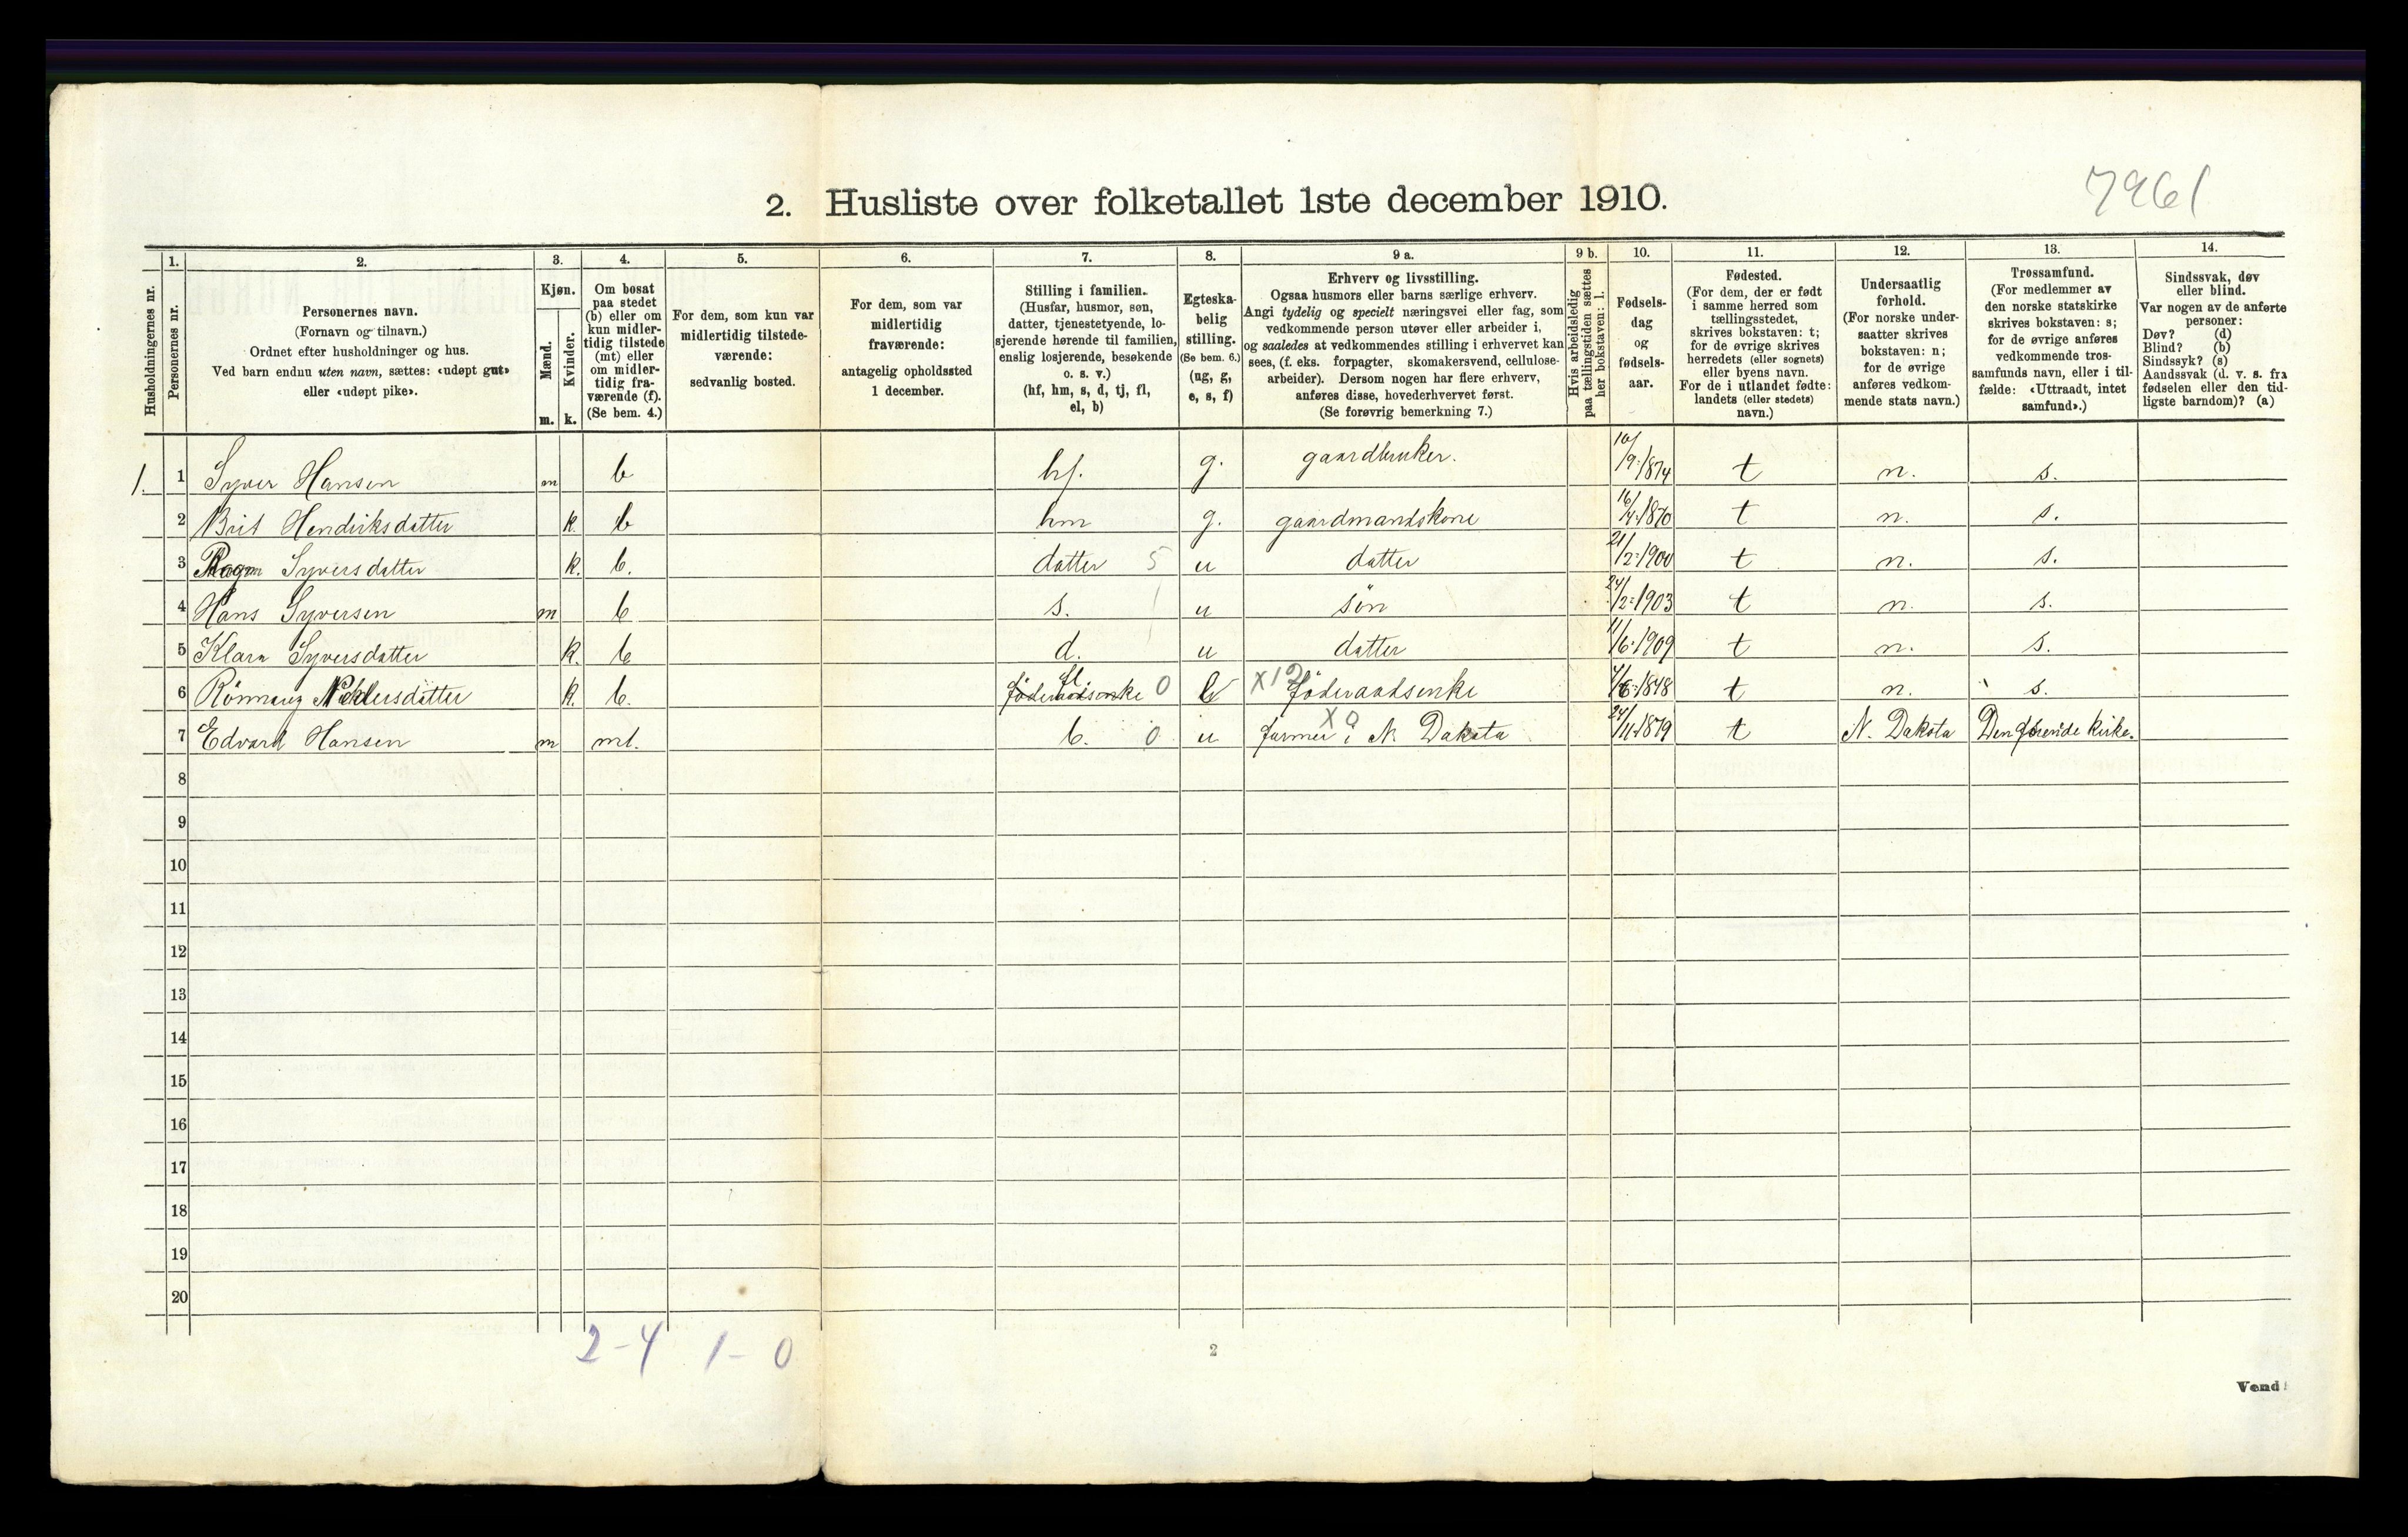 7961
2. Husliste over folketallet 1ste december 1910.
Husholdningernes nr.
1.
Personernes nr.
2.
Personernes navn.
(Fornavn og tilnavn.)
Ordnet efter husholdninger og hus.
Ved barn endnu uten navn, sættes: «udøpt gut»
eller «udøpt pike».
3.
Kjøn.
Mænd.
m.
Kvinder.
k.
4.
Om bosat
paa stedet
(b) eller om
kun midler-
tidig tilstede
(mt) eller
om midler-
tidig fra-
værende (f).
(Se bem. 4.)
5.
For dem, som kun var
midlertidig tilstede-
værende:
sedvanlig bosted.
6.
For dem, som var
midlertidig
fraværende:
antagelig opholdssted
1 december.
7.
Stilling i familien.
(Husfar, husmor, søn,
datter, tjenestetyende, lo-
sjerende hørende til familien,
enslig losjerende, besøkende
o. s. v.)
(hf, hm, s, d, tj, fl,
el, b)
8.
Egteska-
belig
stilling.
(Se bem. 6.)
(ug, g,
e, s, f)
9 a.
Erhverv og livsstilling.
Ogsaa husmors eller barns særlige erhverv.
Angi tydelig og specielt næringsvei eller fag, som
vedkommende person utøver eller arbeider i,
og saaledes at vedkommendes stilling i erhvervet kan
sees, (f. eks. forpagter, skomakersvend, cellulose-
arbeider). Dersom nogen har flere erhverv,
anføres disse, hovederhvervet først.
(Se forøvrig bemerkning 7.)
9 b.
Hvis arbeidsledig
paa tællingstiden sættes
her bokstaven: l.
10.
Fødsels-
dag
og
fødsels-
aar.
11.
Fødested.
(For dem, der er født
i samme herred som
tællingsstedet,
skrives bokstaven: t;
for de øvrige skrives
herredets (eller sognets)
eller byens navn.
For de i utlandet fødte:
landets (eller stedets)
navn.)
12.
Undersaatlig
forhold.
(For norske under-
saatter skrives
bokstaven: n;
for de øvrige
anføres vedkom-
mende stats navn.)
13.
Trossamfund.
(For medlemmer av
den norske statskirke
skrives bokstaven: s;
for de øvrige anføres
vedkommende tros-
samfunds navn, eller i til-
fælde: «Uttraadt, intet
samfund».)
14.
Sindssvak, døv
eller blind.
Var nogen av de anførte
personer:
Døv? (d)
Blind? (b)
Sindssyk? (s)
Aandssvak (d. v. s. fra
fødselen eller den tid-
ligste barndom)? (a)
1. 1 Syver Hansen m b hf. g. gaardbruker. 10/9 1874 t n. s.
2 Brit Hendriksdatter k. b hm g. gaardmandskone 16/4 1870 t n. s.
3 Ragn Syversdatter k. b. datter 5 u datter 21/2 1900 t n. s.
4 Hans Syversen m b s. 1 u søn 24/2 1903 t n. s.
5 Klara Syversdatter k. b d. 1 u datter 11/6 1909 t n. s.
6 Rönnaug k. b. fl föderaadsenke 0 X12 föderaadsenke 1848 t n. s.
7 Edvard Hansen m mt. b. 0 u X 0 farmer i N. Dakota 24/11 1879 t N. Dakota Den kirke.
8
9
10
11
12
13
14
15
16
17
18
19
20
2-4 1-0
2
Vend!